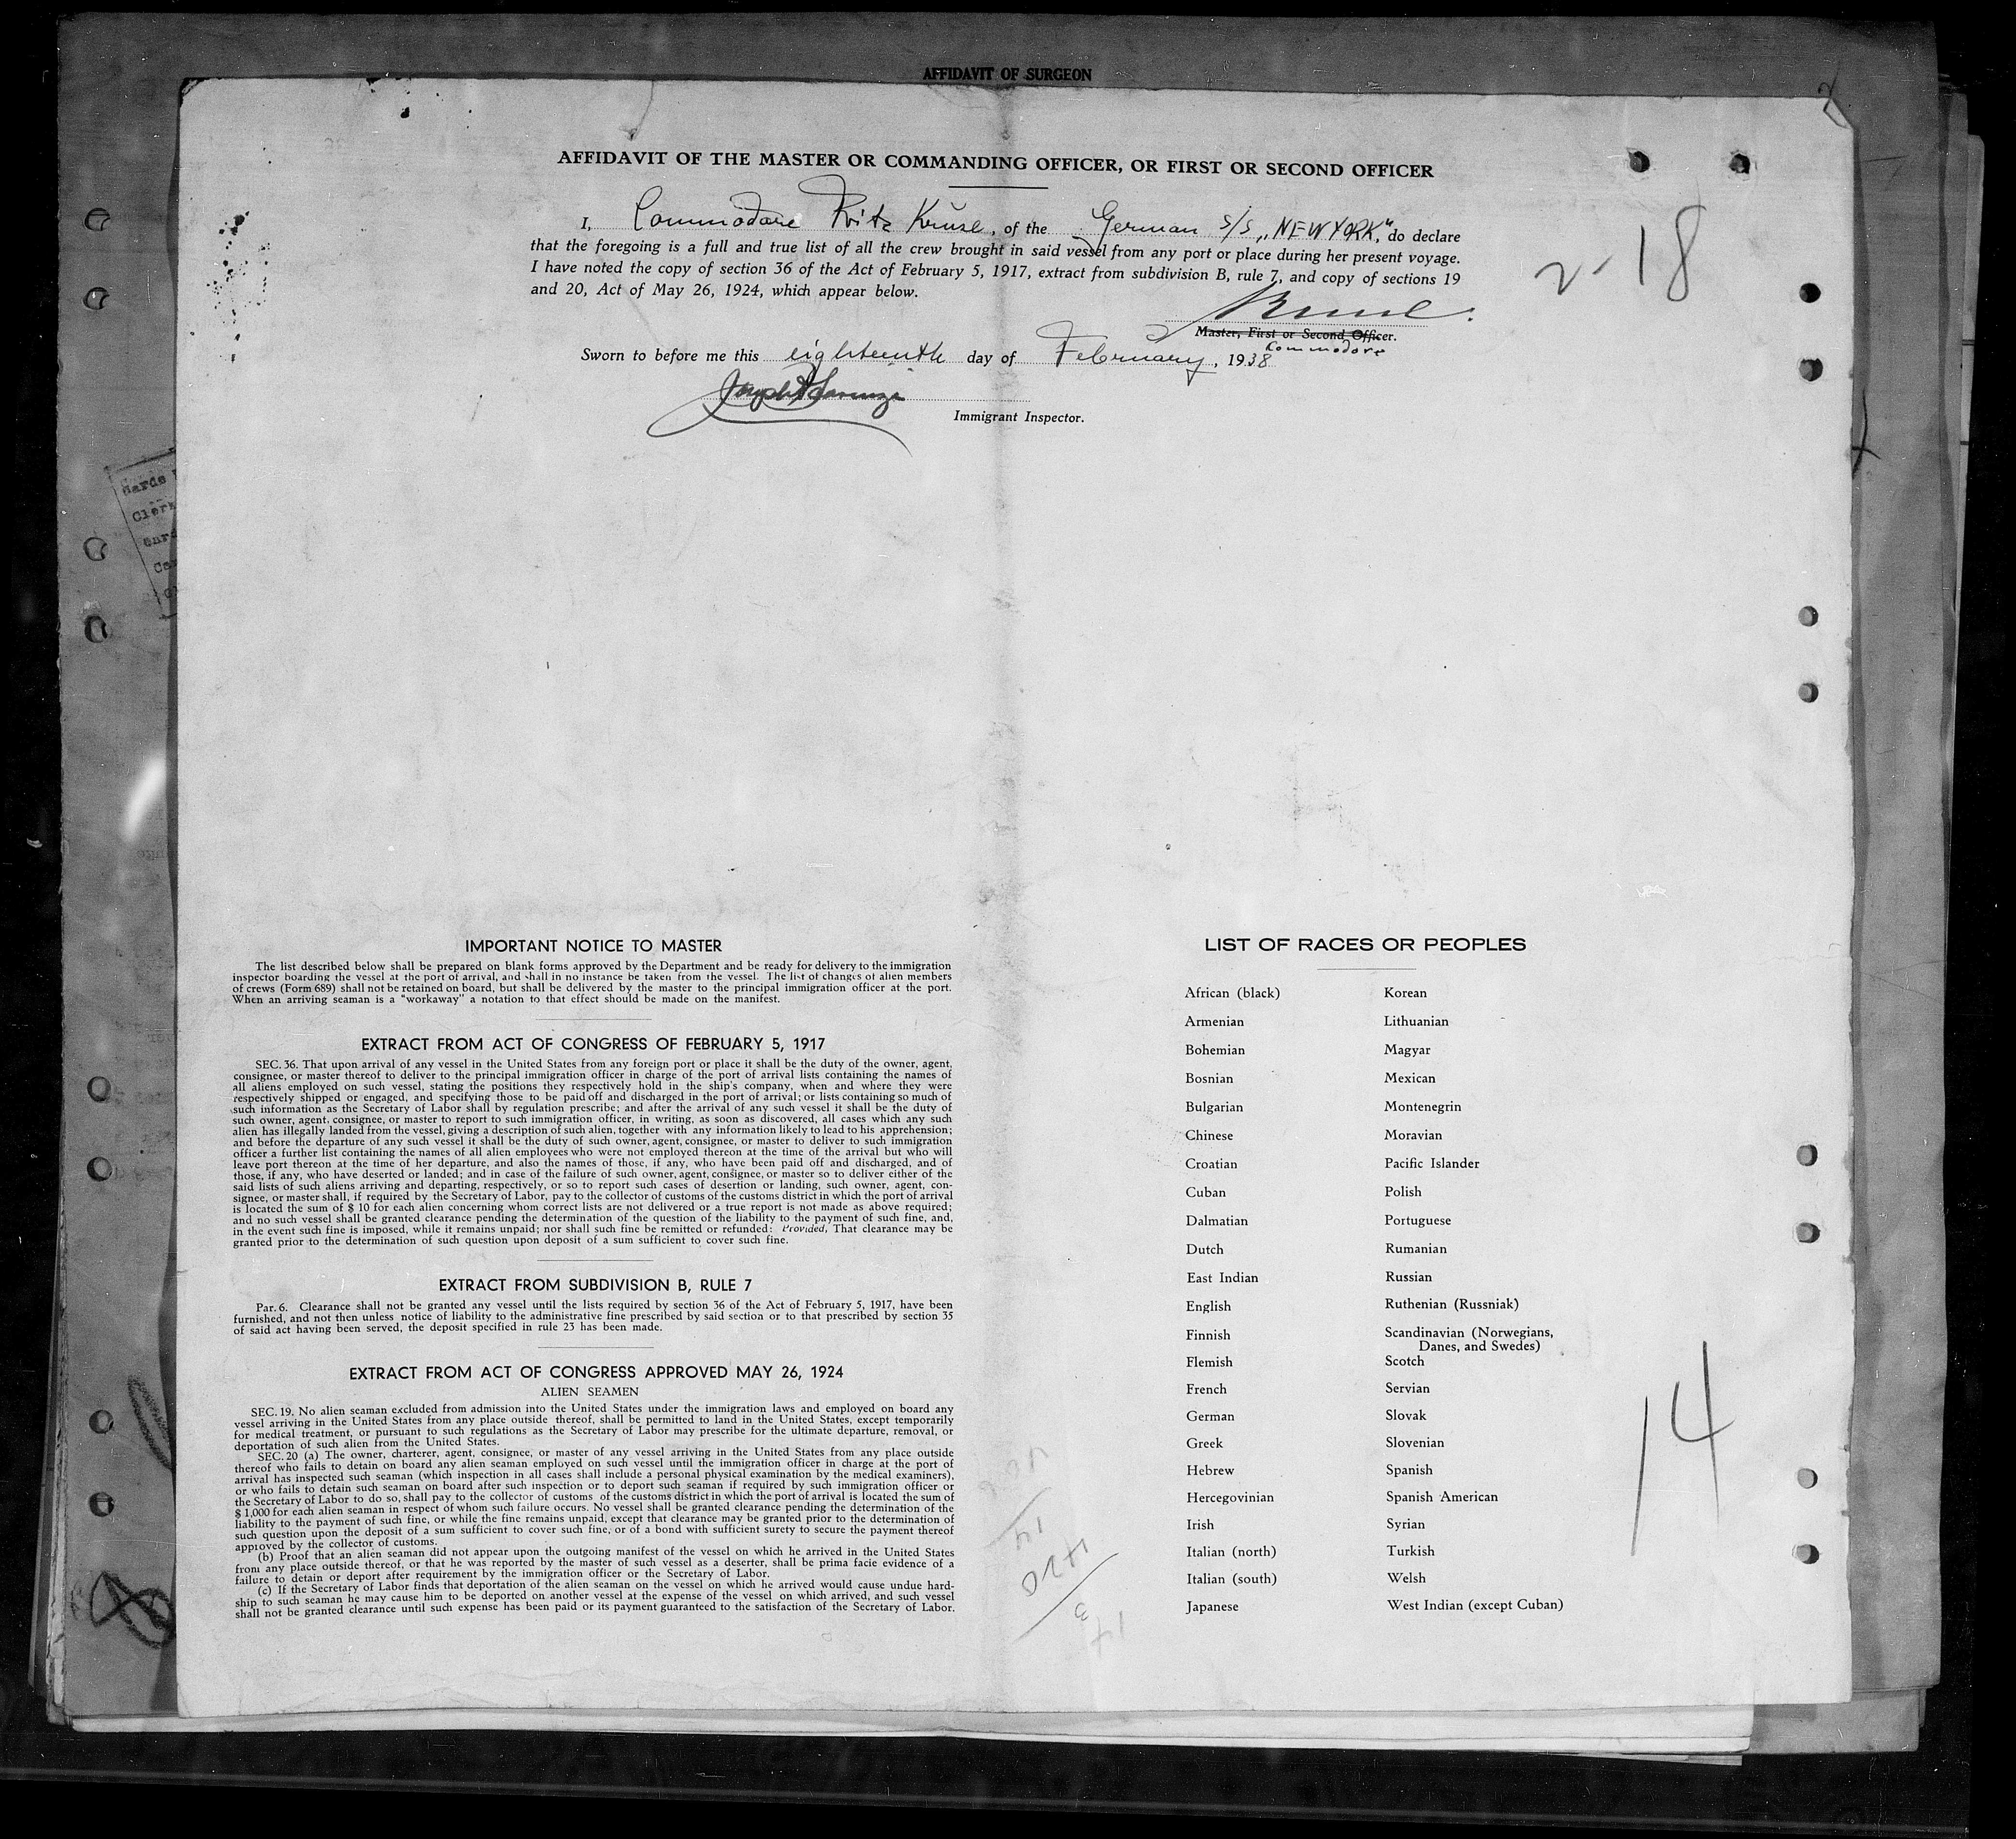 AFFIDAVIT OF SURGEON
AFFIDAVIT OF THE MASTER OR COMMANDING OFFICER, OR FIRST OR SECOND OFFICER
I, Commodore Fritz Kruse, of the German s/s „NEW YORK", do declare
that the foregoing is a full and true list of all the crew brought in said vessel from any port or place during her present voyage.
I have noted the copy of section 36 of the Act of February 5, 1917, extract from subdivision B, rule 7, and copy of sections 19
and 20, Act of May 26, 1924, which appear below.
2-18
Kruse.
Master, First or Second Officer.
Commodore
Sworn to before me this eighteenth day of February, 1938
Immigrant Inspector.
IMPORTANT NOTICE TO MASTER
The list described below shall be prepared on blank forms approved by the Department and be ready for delivery to the immigration
inspector boarding the vessel at the port of arrival, and shall in no instance be taken from the vessel. The list of changes of alien members
of crews (Form 689) shall not be retained on board, but shall be delivered by the master to the principal immigration officer at the port.
When an arriving seaman is a "workaway" a notation to that effect should be made on the manifest.
EXTRACT FROM ACT OF CONGRESS OF FEBRUARY 5, 1917
SEC. 36. That upon arrival of any vessel in the United States from any foreign port or place it shall be the duty of the owner, agent,
consignee, or master thereof to deliver to the principal immigration officer in charge of the port of arrival lists containing the names of
all aliens employed on such vessel, stating the positions they respectively hold in the ship's company, when and where they were
respectively shipped or engaged, and specifying those to be paid off and discharged in the port of arrival; or lists containing so much of
such information as the Secretary of Labor shall by regulation prescribe; and after the arrival of any such vessel it shall be the duty of
such owner, agent, consignee, or master to report to such immigration officer, in writing, as soon as discovered, all cases which any such
alien has illegally landed from the vessel, giving a description of such alien, together with any information likely to lead to his apprehension;
and before the departure of any such vessel it shall be the duty of such owner, agent, consignee, or master to deliver to such immigration
officer a further list containing the names of all alien employees who were not employed thereon at the time of the arrival but who will
leave port thereon at the time of her departure, and also the names of those, if any, who have been paid off and discharged, and of
those, if any, who have deserted or landed; and in case of the failure of such owner, agent, consignee, or master so to deliver either of the
said lists of such aliens arriving and departing, respectively, or so to report such cases of desertion or landing, such owner, agent, con-
signee, or master shall, if required by the Secretary of Labor, pay to the collector of customs of the customs district in which the port of arrival
is located the sum of $ 10 for each alien concerning whom correct lists are not delivered or a true report is not made as above required;
and no such vessel shall be granted clearance pending the determination of the question of the liability to the payment of such fine, and,
in the event such fine is imposed, while it remains unpaid; nor shall such fine be remitted or refunded: Provided, That clearance may be
granted prior to the determination of such question upon deposit of a sum sufficient to cover such fine.
EXTRACT FROM SUBDIVISION B, RULE 7
Par. 6. Clearance shall not be granted any vessel until the lists required by section 36 of the Act of February 5, 1917, have been
furnished, and not then unless notice of liability to the administrative fine prescribed by said section or to that prescribed by section 35
of said act having been served, the deposit specified in rule 23 has been made.
EXTRACT FROM ACT OF CONGRESS APPROVED MAY 26, 1924
ALIEN SEAMEN
SEC. 19. No alien seaman excluded from admission into the United States under the immigration laws and employed on board any
vessel arriving in the United States from any place outside thereof, shall be permitted to land in the United States, except temporarily
for medical treatment, or pursuant to such regulations as the Secretary of Labor may prescribe for the ultimate departure, removal, or
deportation of such alien from the United States.
SEC. 20 (a) The owner, charterer, agent, consignee, or master of any vessel arriving in the United States from any place outside
thereof who fails to detain on board any alien seaman employed on such vessel until the immigration officer in charge at the port of
arrival has inspected such seaman (which inspection in all cases shall include a personal physical examination by the medical examiners),
or who fails to detain such seaman on board after such inspection or to deport such seaman if required by such immigration officer or
the Secretary of Labor to do so, shall pay to the collector of customs of the customs district in which the port of arrival is located the sum of
$ 1,000 for each alien seaman in respect of whom such failure occurs. No vessel shall be granted clearance pending the determination of the
liability to the payment of such fine, or while the fine remains unpaid, except that clearance may be granted prior to the determination of
such question upon the deposit of a sum sufficient to cover such fine, or of a bond with sufficient surety to secure the payment thereof
approved by the collector of customs.
(b) Proof that an alien seaman did not appear upon the outgoing manifest of the vessel on which he arrived in the United States
from any place outside thereof, or that he was reported by the master of such vessel as a deserter, shall be prima facie evidence of a
failure to detain or deport after requirement by the immigration officer or the Secretary of Labor.
(c) If the Secretary of Labor finds that deportation of the alien seaman on the vessel on which he arrived would cause undue hard-
ship to such seaman he may cause him to be deported on another vessel at the expense of the vessel on which arrived, and such vessel
shall not be granted clearance until such expense has been paid or its payment guaranteed to the satisfaction of the Secretary of Labor.
LIST OF RACES OR PEOPLES
African (black)
Armenian
Bohemian
Bosnian
Bulgarian
Chinese
Croatian
Cuban
Dalmatian
Dutch
East Indian
English
Finnish
Flemish
French
German
Greek
Hebrew
Hercegovinian
Irish
Italian (north)
Italian (south)
Japanese
Korean
Lithuanian
Magyar
Mexican
Montenegrin
Moravian
Pacific Islander
Polish
Portuguese
Rumanian
Russian
Ruthenian (Russniak)
Scandinavian (Norwegians,
Danes, and Swedes)
Scotch
Servian
Slovak
Slovenian
Spanish
Spanish American
Syrian
Turkish
Welsh
West Indian (except Cuban)
14